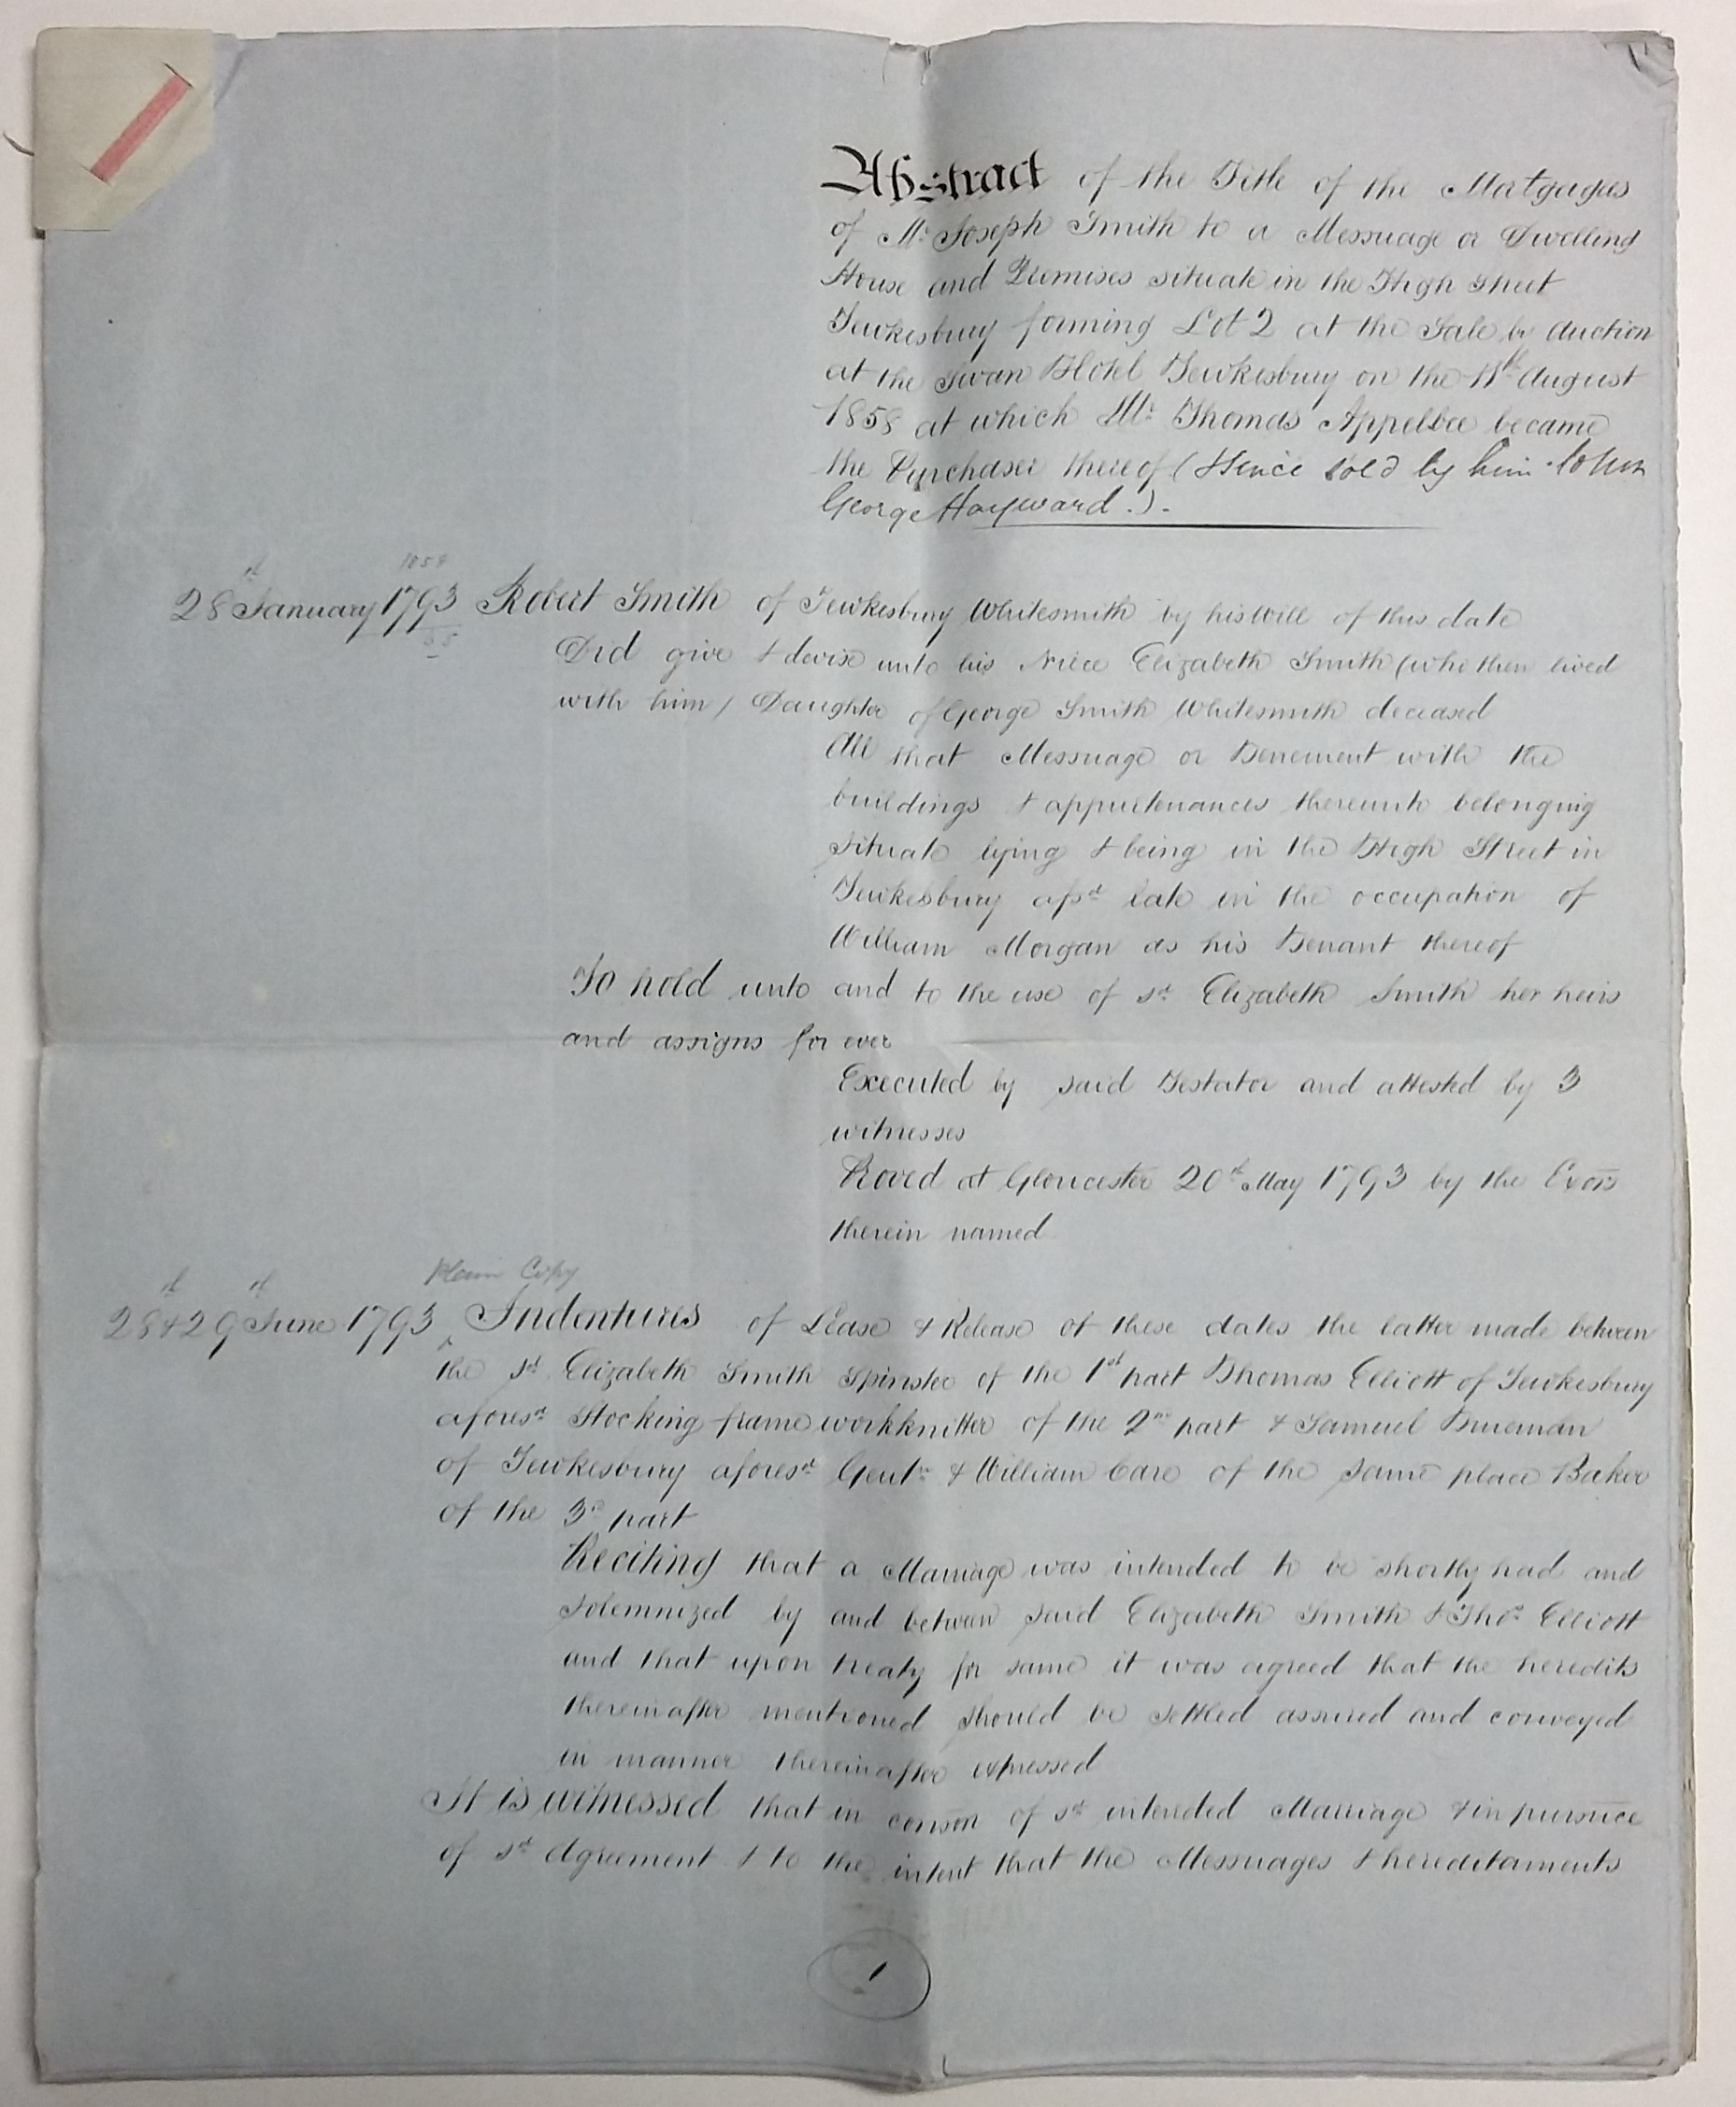 Abstract of the Title of the Mortgagees
of Mr Joseph Smith to a Messuage or Dwelling
House and Premises situate in the High Street
Tewkesbury forming Lot 2 at the Sale by Auction
at the Swan Hotel Tewkesbury on the 11th August
1858 at which Mr Thomas Appelbee became
the Purchaser thereof (Since sold by him to
George Hayward.).
1858
28th January 1793 Robert Smith of Tewkesbury Whitesmith by his Will of this date
55
Did give & devise unto his Niece Elizabeth Smith (who then lived
with him) Daughter of George Smith Whitesmith deceased
All that Messuage or Tenement with the
buildings & appurtenances thereunto belonging
situate lying & being in the High Street in
Tewkesbury afsd late in the occupation of
William Morgan as his Tenant thereof
To hold unto and to the use of sd Elizabeth Smith her heirs
and assigns for ever
Executed by said Testator and attested by 3
witnesses
Proved at Gloucester 20th May 1793 by the Exors
therein named
Plain Copy
28th & 29th June 1793 Indentures of Lease & Release of these dates the latter made between
the sd Elizabeth Smith Spinster of the 1st part Thomas Elliott of Tewkesbury
aforesd Stocking frame workknitter of the 2nd part & Samuel Trueman
of Tewkesbury aforesd Gentn & William Care of the same place Baker
of the 3rd part
Reciting that a Marriage was intended to be shortly had and
solemnized by and between said Elizabeth Smith & Thos Elliott
and that upon treaty for same it was agreed that the heredits
thereinafter mentioned should be settled assured and conveyed
in manner thereinafter expressed
It is witnessed that in conson of sd intended Marriage & in pursuce
of sd Agreement & to the intent that the Messuages & hereditaments
1